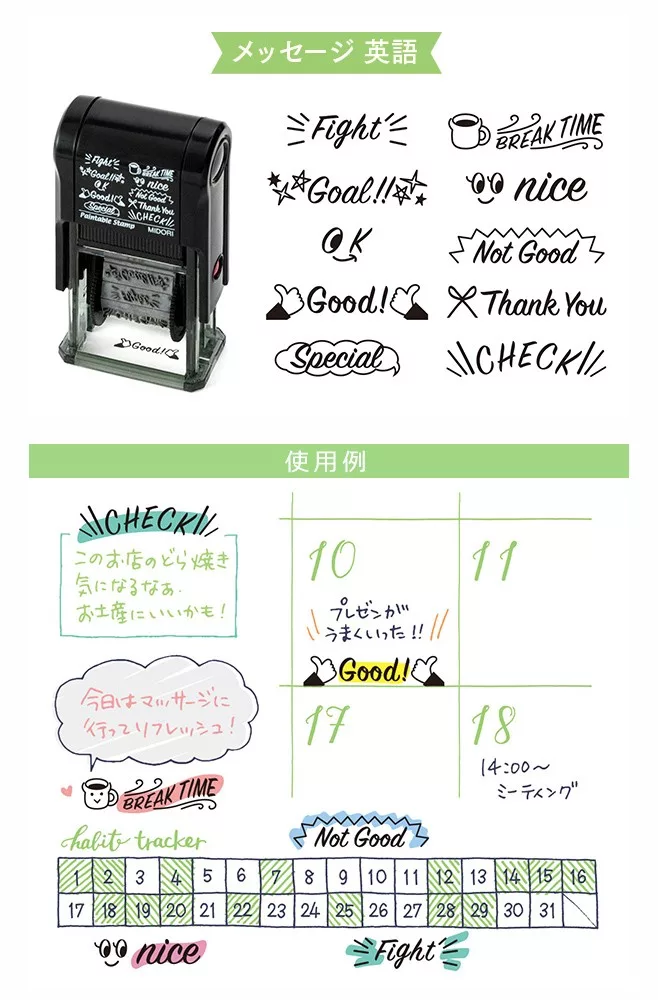 メッセージ 英語
Fight
BREAK TIME
Goal!!
nice
OK
Not Good
Good!
Thank You
Special
CHECK
Fight
BREAK TIME
Goal!!
nice
OK
Not Good
Good!
Thank You
Special
CHECK
Paintable Stamp
MIDORI
Good!
使用例
CHECK
このお店のどら焼き
気になるなぁ.
お土産にいいかも!
10
11
プレゼンが
うまくいった!!
Good!
今日はマッサージに
行ってリフレッシュ!
BREAK TIME
17
18
14:00~
ミーティング
habit tracker
Not Good
1 2 3 4 5 6 7 8 9 10 11 12 13 14 15 16
17 18 19 20 21 22 23 24 25 26 27 28 29 30 31
nice
Fight